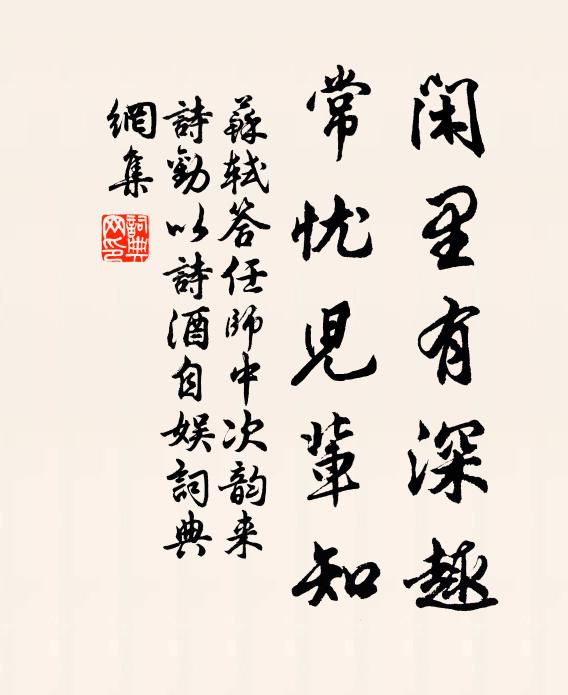 閑里有深趣
常忧児輩知
蘇軾答任師中次韵来
詩勸以詩酒自娱詞典
網集
詞典网印